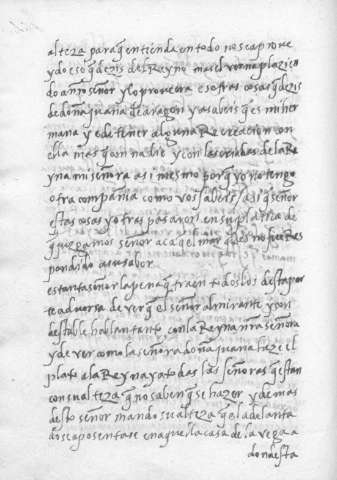 alteza para q̃ entienda en todo no se aprove
y do eso q̃ dezis del Reyno mas el
do año señor y lo proveera eso tras cosas q̃ dezis
de doña juana de aragon ya sabeis q̃ es mi her
mana y e de tener alguna Recreaçion con
ella mas q̃ con nadie y con las criadas de la Re
yna mi señora asi mesmo porq̃ yo no tengo
otra compañia como vos sabeis asi q̃ señor
estas cosas y otras pasaron en su platica de
q̃ señor aca q̃ el marques no fue Res
pondido a su sabor
es tanta señor la pena q̃ traen todos los desta par
te adversa de ver q̃ el señor almirante y con
destable hablan tanto con la Reyna nr̃a señora
y de ver como la señora doña juana haze el
plato a la Reyna ya todas las señoras q̃ estan
con su alteza q̃ no saben q̃ se hazer y demas
desto señor mando su alteza q̃ el adelanta
do se aposentase en aquella casa de la vega a
donde esta